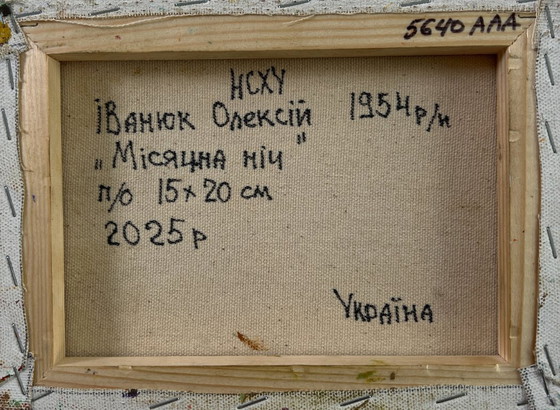 5640 ААА
НСХУ
Іванюк Олексій 1954 р/н
„Місячна ніч"
п/о 15х20 см
2025р
Україна